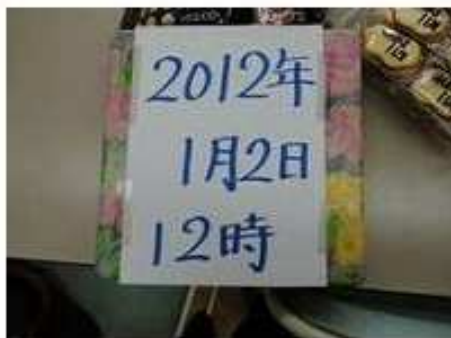 2012年
1月2日
12時